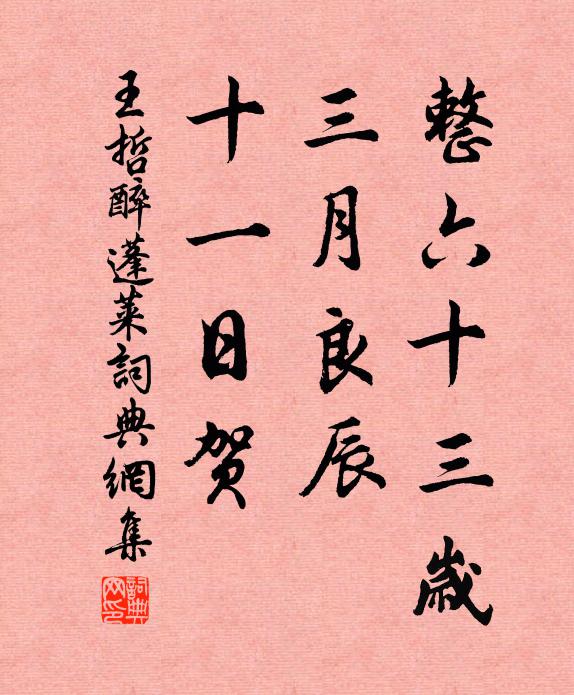 整六十三歲
三月良辰
十一日賀
王哲醉蓬萊詞典網集
詞典網印